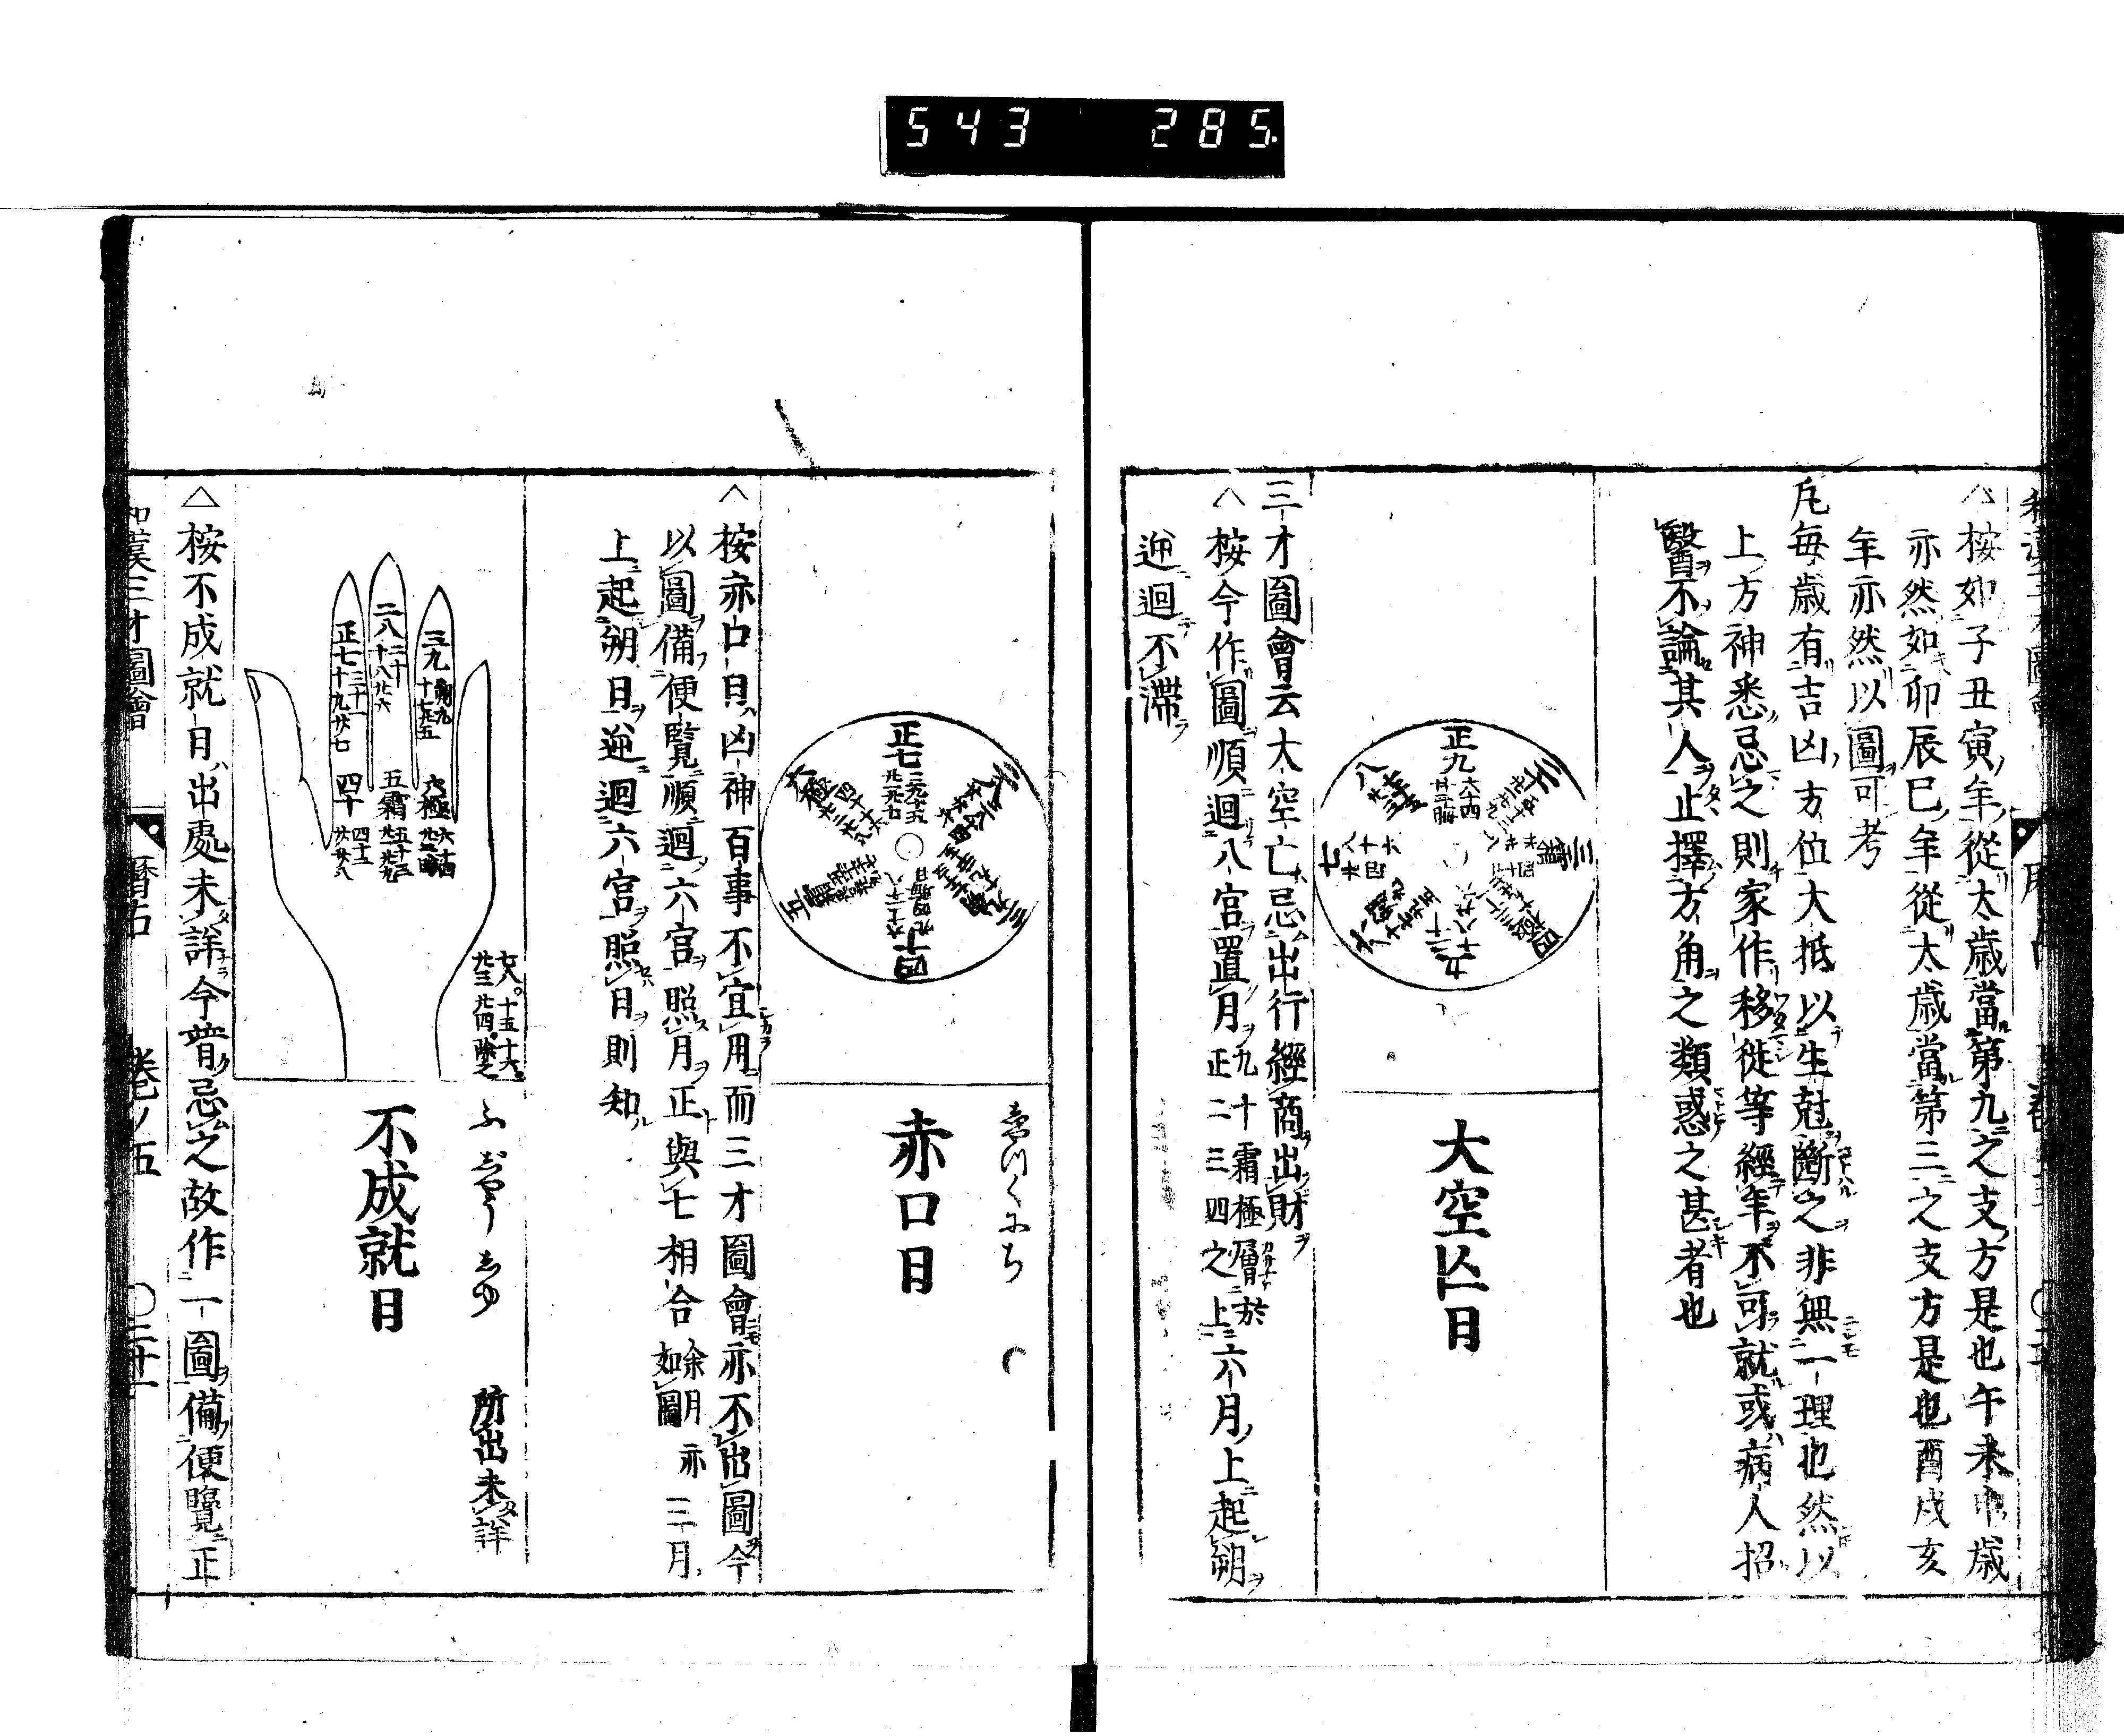 543 285
△按如子丑寅年從太歳當第九之支方是也午未申歳
亦然如卯辰巳年從太歳當第三之支方是也酉戌亥
年亦然以圖可考
凡毎歳有吉凶方位大抵以生尅斷之非無一理也然以
上方神悉忌之則家作移徙等經年不可就或病人招
醫不論其人止擇方角之類惑之甚者也
大空亡日
三才圖會云大空亡忌出行經商出財
△按今作圖順迴八宮置月九十霜極層於正二三四之上六月上起朔
逆迴不滯
赤口日
△按赤口日凶神百事不宜用而三才圖會亦不出圖今
以圖備便覽順迴六宮照月正與七相合余月亦如圖三月
上起朔日逆迴六宮照日則知
所出未詳
不成就日
三九
二八十八廿六
正七
四十
五霜
六極
七八。十五十六。
廿三廿四。除之
△按不成就日出處未詳今普忌之故作一圖備便覽正
和漢三才圖會 暦占 卷ノ五 〇二十一